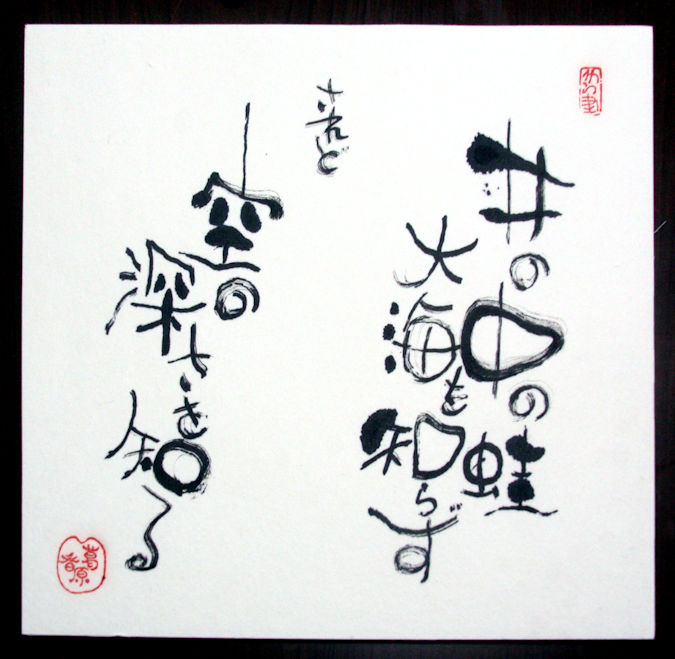 井の中の蛙
大海を知らず
されど
空の
深さを知る
葛原